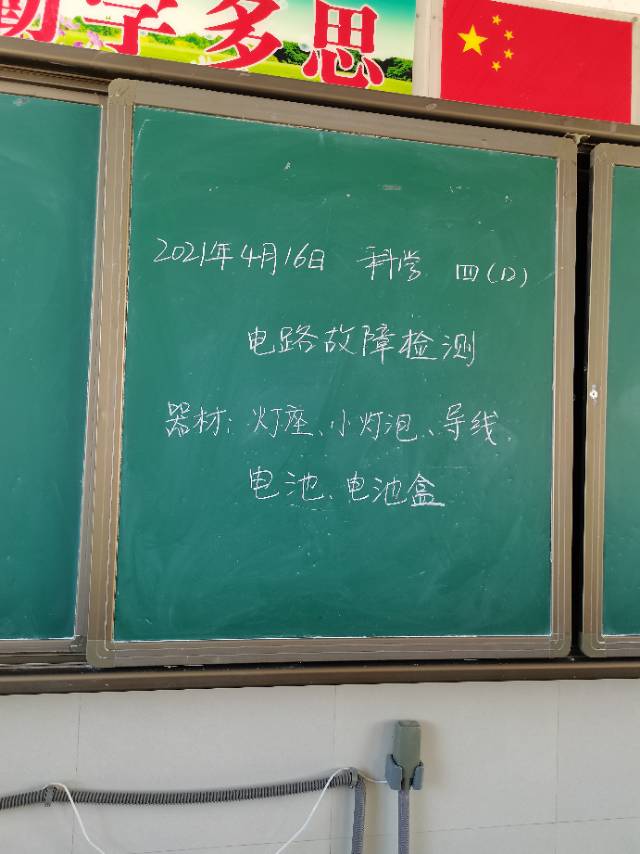 勤学多思
2021年4月16日 科学 四(12)
电路故障检测
器材：灯座、小灯泡、导线、
电池、电池盒